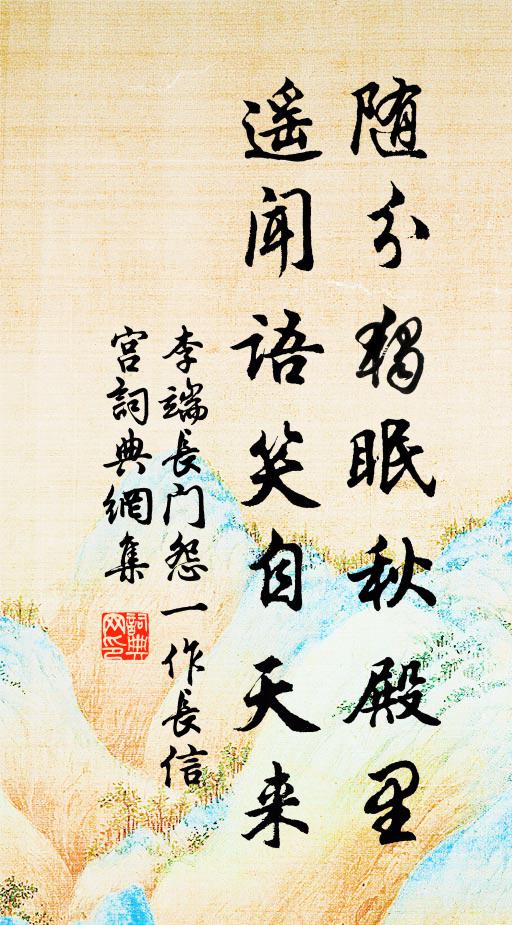 随分独眠秋殿里
遥闻语笑自天来
李端长门怨一作长信
宫詞典網集
詞典
网印